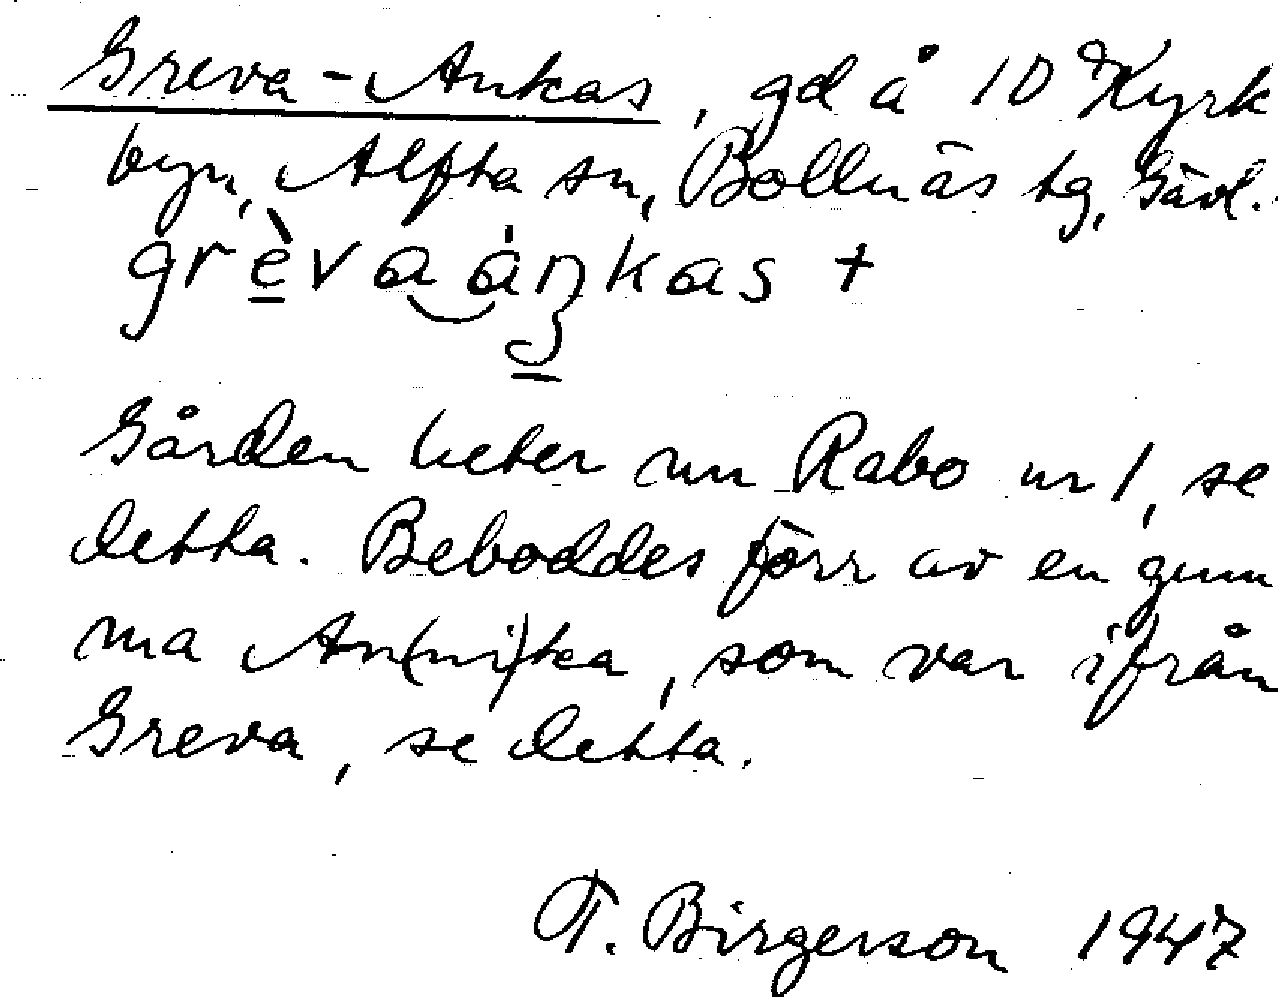 Greva-Ankas, gd å 10 Kyrk
byn, Alfta sn, Bollnäs tg, Gävl.
grèva áŋkas +
Gården heter nu Rabo nr 1, se
detta. Beboddes förr av en gum
ma An(ni)ka, som var ifrån
Greva, se detta.
T. Birgerson 1947